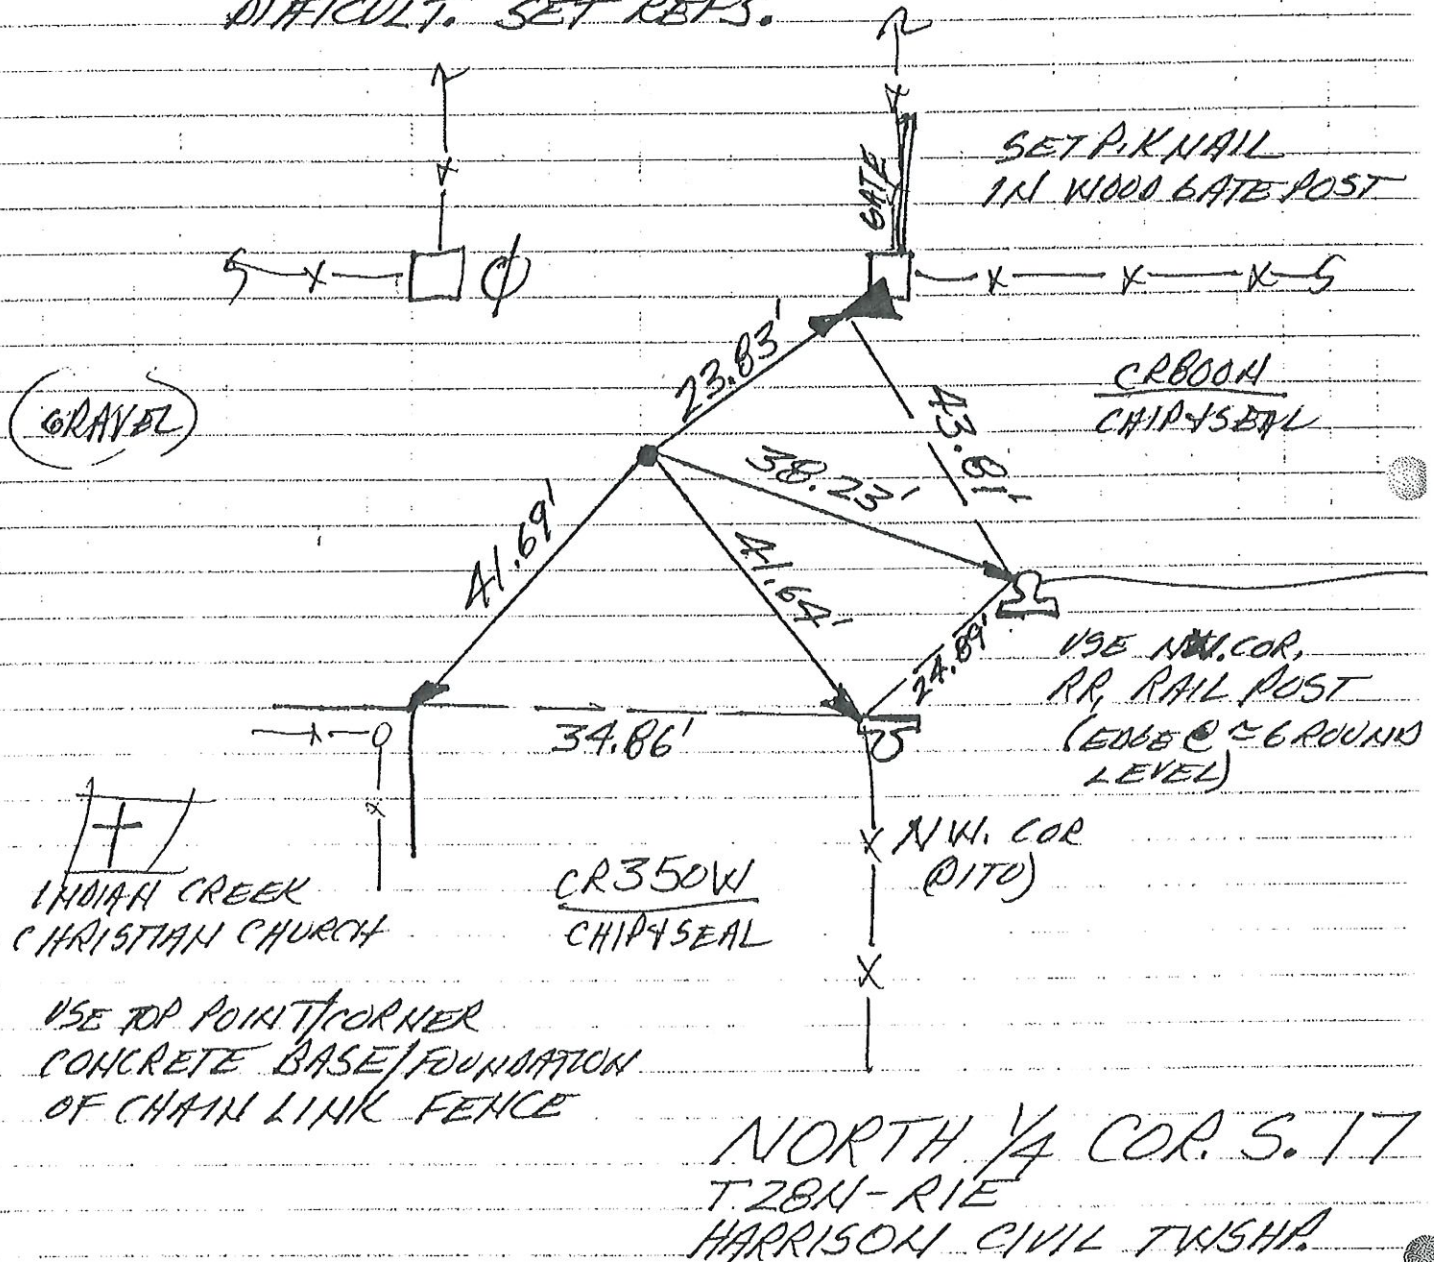 DIFFICULT. SET REFS.
SET P.K NAIL
IN WOOD GATE POST
GATE
23.83'
CR800N
CHIP & SEAL
43.81'
(GRAVEL)
38.23'
41.69'
41.64'
24.89'
USE NW. COR,
RR, RAIL POST
(EDGE @ ≈ GROUND
LEVEL)
34.86'
N W. COR
(DITO)
INDIAN CREEK
CHRISTIAN CHURCH
CR350W
CHIP & SEAL
USE TOP POINT/CORNER
CONCRETE BASE/FOUNDATION
OF CHAIN LINK FENCE
NORTH 1/4 COR. S. 17
T.28N - R1E
HARRISON CIVIL TWSHP.